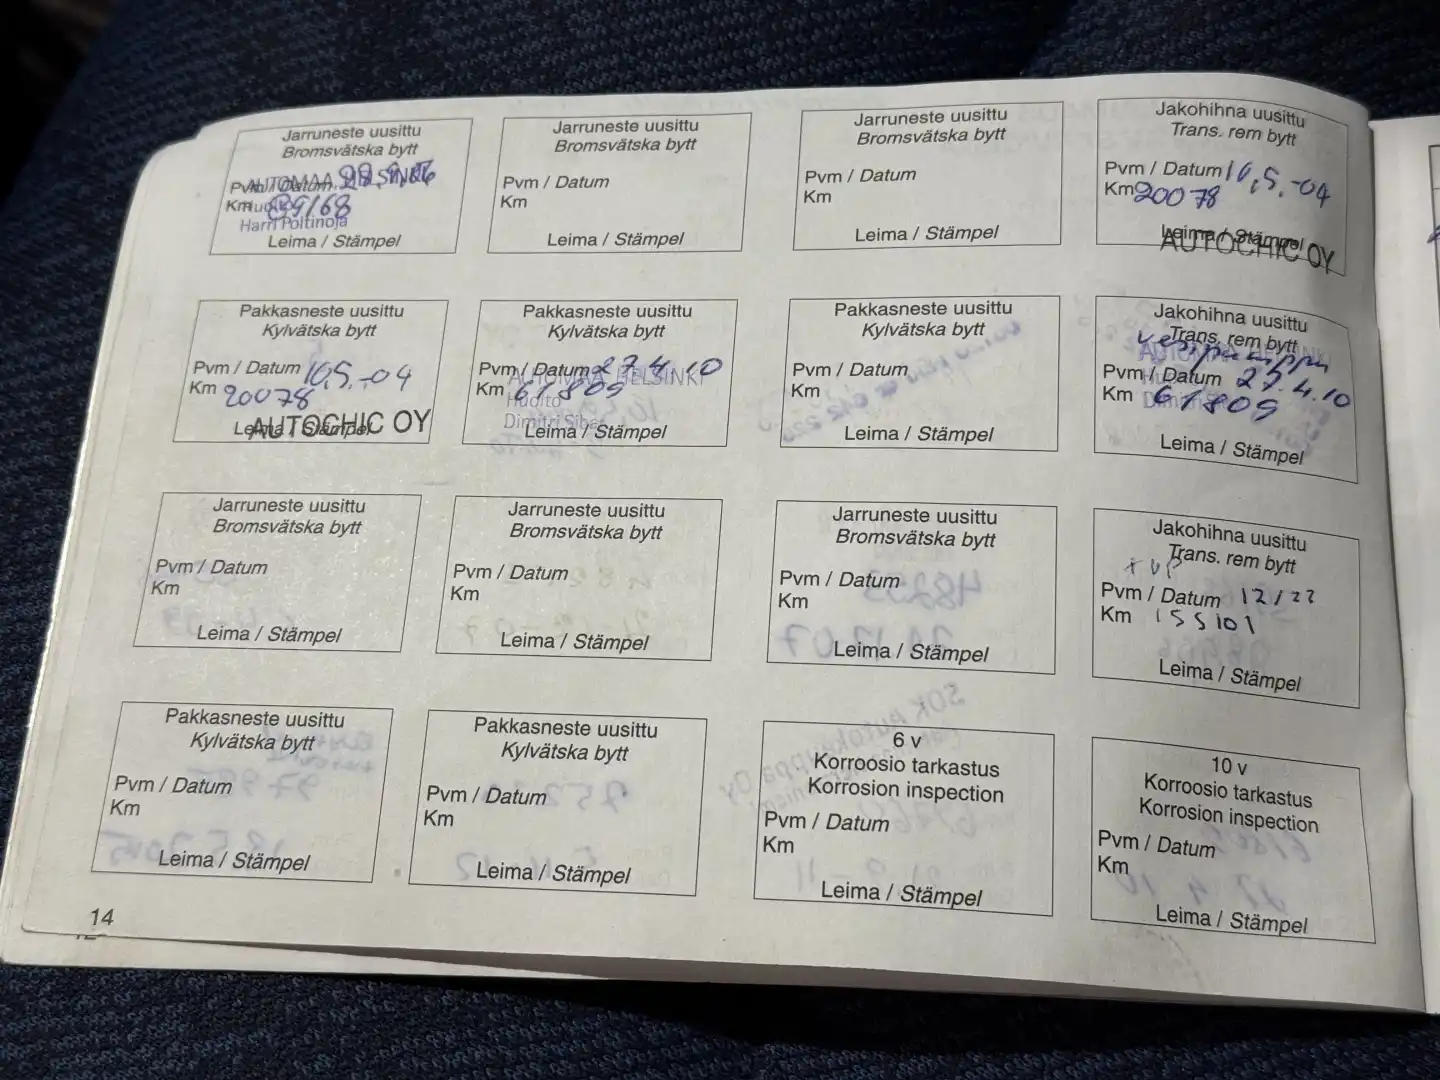 Jarruneste uusittu
Bromsvätska bytt
AUTOMAA HELSINKI
Pvm / Datum
Km 89168
Huolto
Harri Poltinoja
Leima / Stämpel
Jarruneste uusittu
Bromsvätska bytt
Pvm / Datum
Km
Leima / Stämpel
Jarruneste uusittu
Bromsvätska bytt
Pvm / Datum
Km
Leima / Stämpel
Jakohihna uusittu
Trans. rem bytt
Pvm / Datum 10.5.-04
Km 20078
Leima / Stämpel
AUTOCHIC OY
Pakkasneste uusittu
Kylvätska bytt
Pvm / Datum 10.5.-04
Km 20078
Leima / Stämpel
AUTOCHIC OY
Pakkasneste uusittu
Kylvätska bytt
Pvm / Datum 27.4.10
AUTOMAA HELSINKI
Km 61809
Huolto
Dimitri
Leima / Stämpel
Pakkasneste uusittu
Kylvätska bytt
Pvm / Datum
Km
Leima / Stämpel
Jakohihna uusittu
Trans. rem bytt
vesipumppu
AUTOMAA HELSINKI
Pvm / Datum 27.4.10
Km 61809
Leima / Stämpel
Jarruneste uusittu
Bromsvätska bytt
Pvm / Datum
Km
Leima / Stämpel
Jarruneste uusittu
Bromsvätska bytt
Pvm / Datum
Km
Leima / Stämpel
Jarruneste uusittu
Bromsvätska bytt
Pvm / Datum
Km
Leima / Stämpel
Jakohihna uusittu
Trans. rem bytt
+ VP
Pvm / Datum 12/22
Km 155101
Leima / Stämpel
Pakkasneste uusittu
Kylvätska bytt
Pvm / Datum
Km
Leima / Stämpel
Pakkasneste uusittu
Kylvätska bytt
Pvm / Datum
Km
Leima / Stämpel
6 v
Korroosio tarkastus
Korrosion inspection
Pvm / Datum
Km
Leima / Stämpel
10 v
Korroosio tarkastus
Korrosion inspection
Pvm / Datum
Km
Leima / Stämpel
14